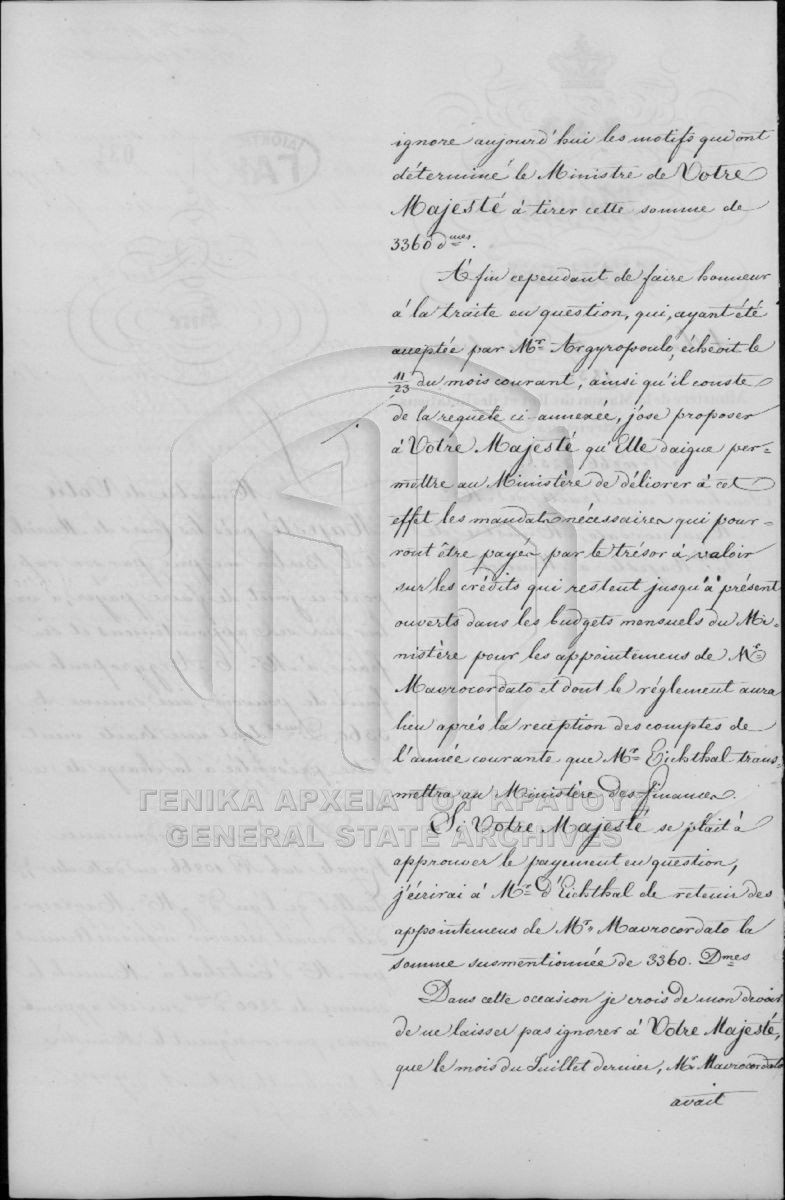 ignore aujourd'hui les motifs qui ont
déterminé le Ministre de Votre
Majesté à tirer cette somme de
3360 dmes.
Afin cependant de faire honneur
à la traite en question, qui, ayant été
acceptée par Mr. Argyropoulo, échéoit le
11/23 du mois courant, ainsi qu'il conste
de la requête ci-annexée, j'ose proposer
à Votre Majesté qu'Elle daigne per=
mettre au Ministère de délivrer à cet
effet les mandats nécessaires qui pour=
ront être payés par le trésor à valoir
sur les crédits qui restent jusqu'à présent
ouverts dans les budgets mensuels du Mi=
nistère pour les appointemens de Mr.
Mavrocordato et dont le réglement aura
lieu après la reception des comptes de
l'année courante que Mr. Eichthal trans=
mettra au Ministère des finances.
ΓΕΝΙΚΑ ΑΡΧΕΙΑ ΤΟΥ ΚΡΑΤΟΥΣ
GENERAL STATE ARCHIVES
Si Votre Majesté se plaît à
approuver le payement en question,
j'écrirai à Mr. d'Eichthal de retenir des
appointemens de Mr. Mavrocordato la
somme susmentionnée de 3360. Dmes
Dans cette occasion je crois de mon devoir
de ne laisser pas ignorer à Votre Majesté,
que le mois du Juillet dernier, Mr. Mavrocordato
avait